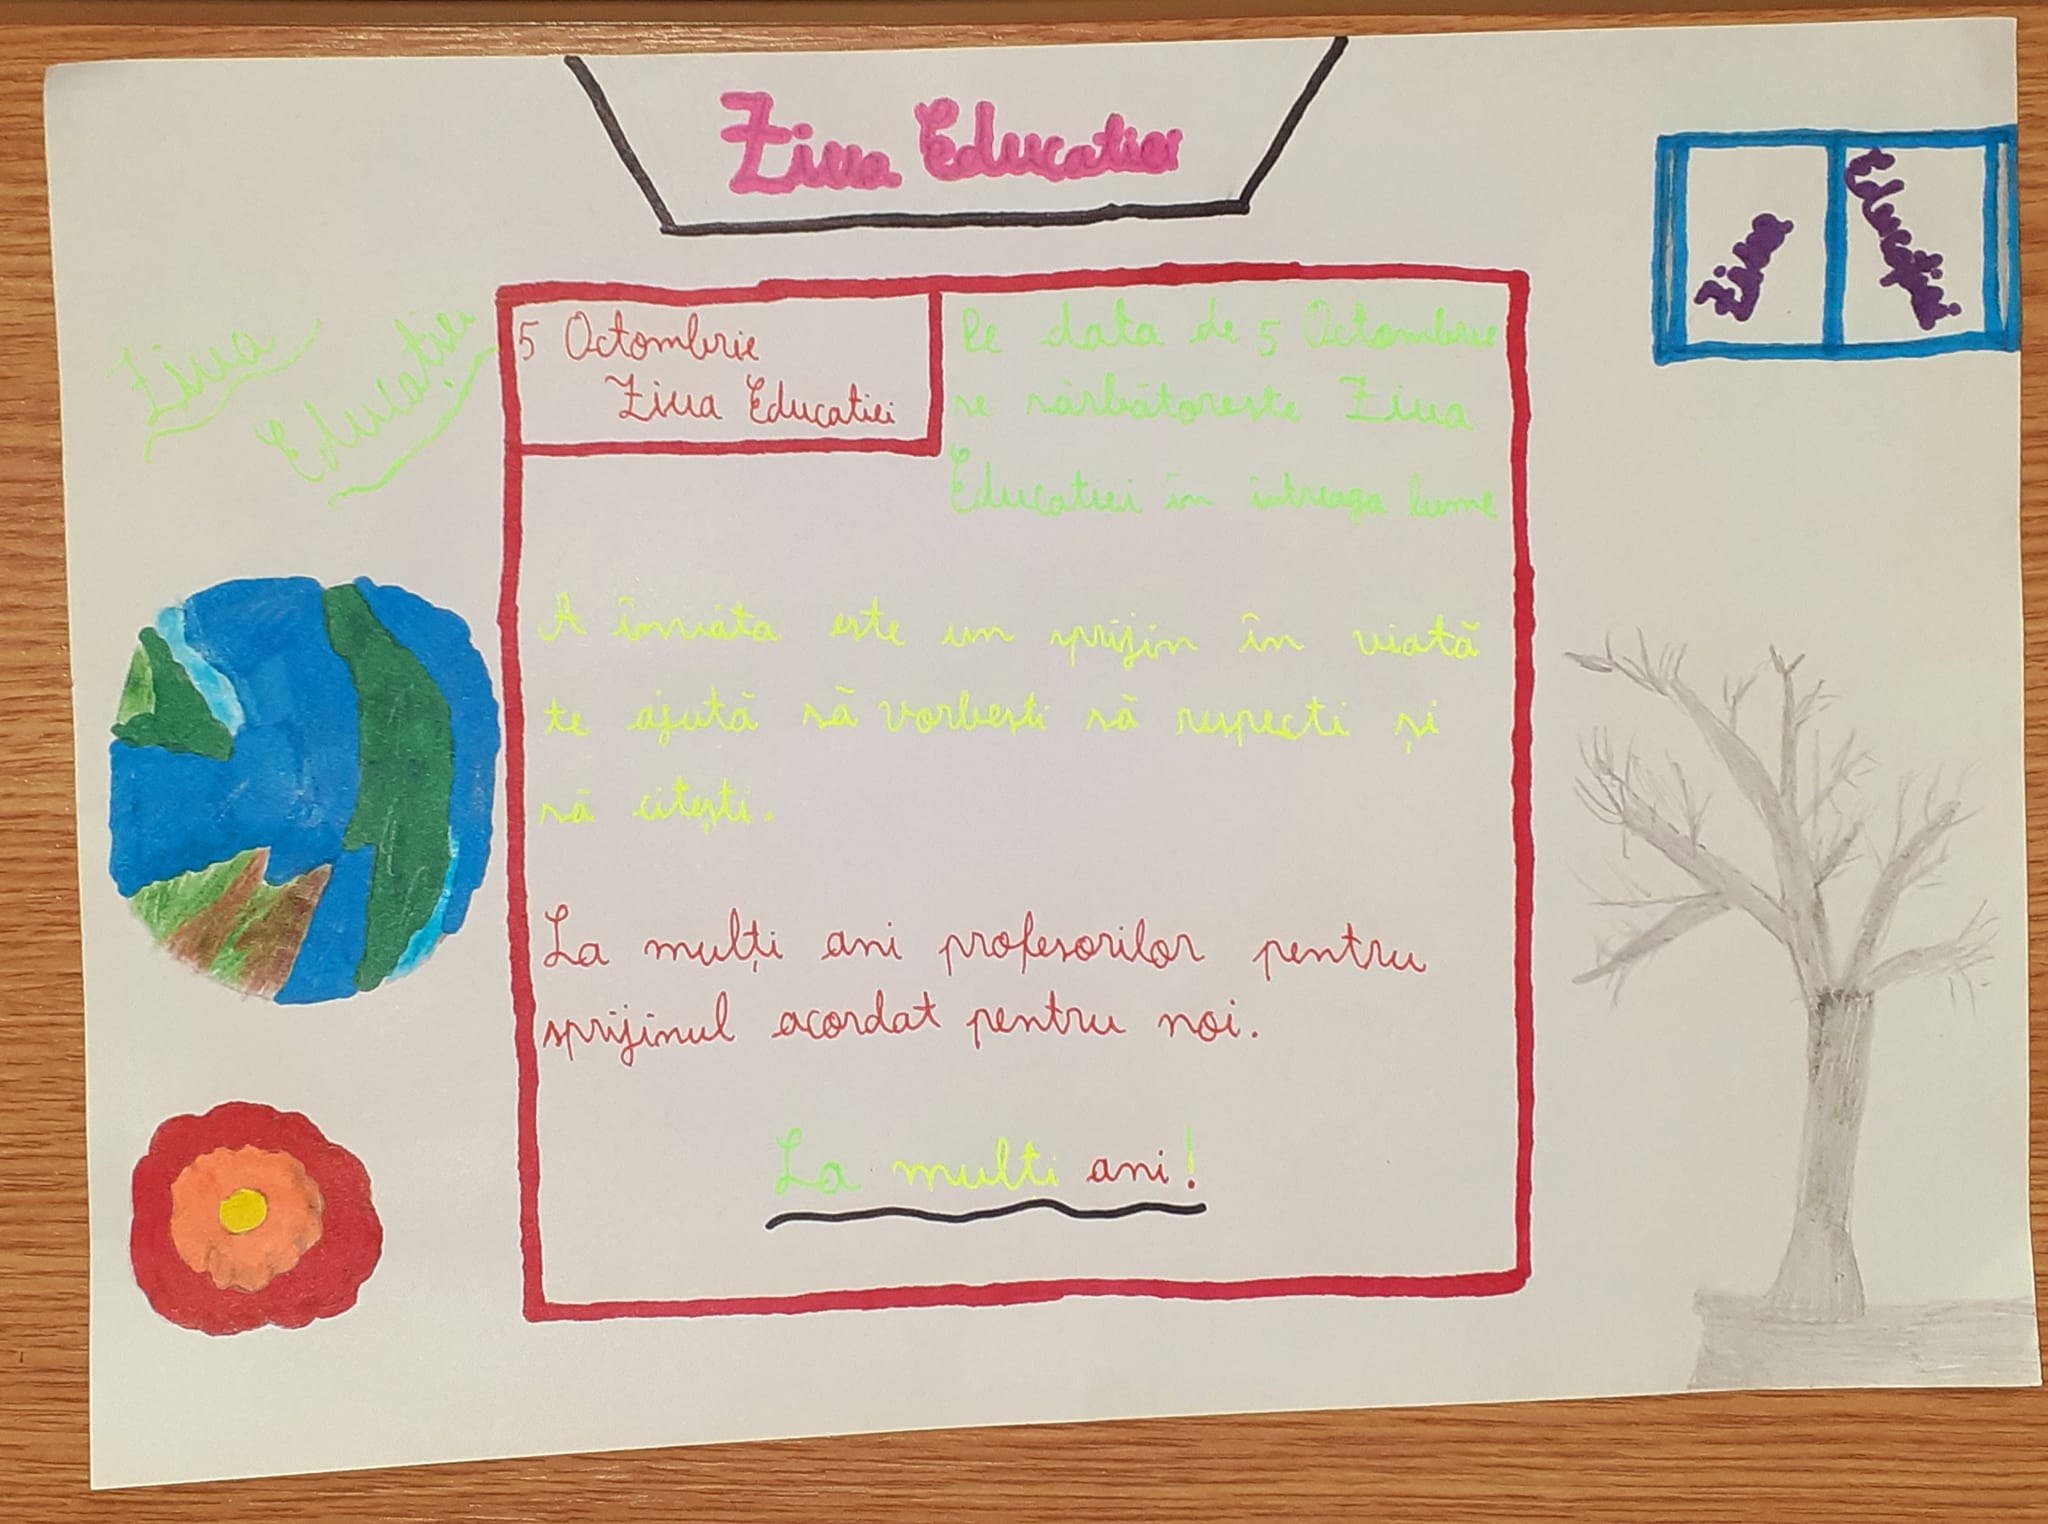 Ziua Educatiei
Ziua Educației
Ziua
Educației
5 Octombrie
Ziua Educatiei
Pe data de 5 Octombrie
se sărbătoreste Ziua
Educatiei în intreaga lume
A învăta este un sprijin în viată
te ajută să vorbesti să respecti și
să citești.
La mulți ani profesorilor pentru
sprijinul acordat pentru noi.
La multi ani!